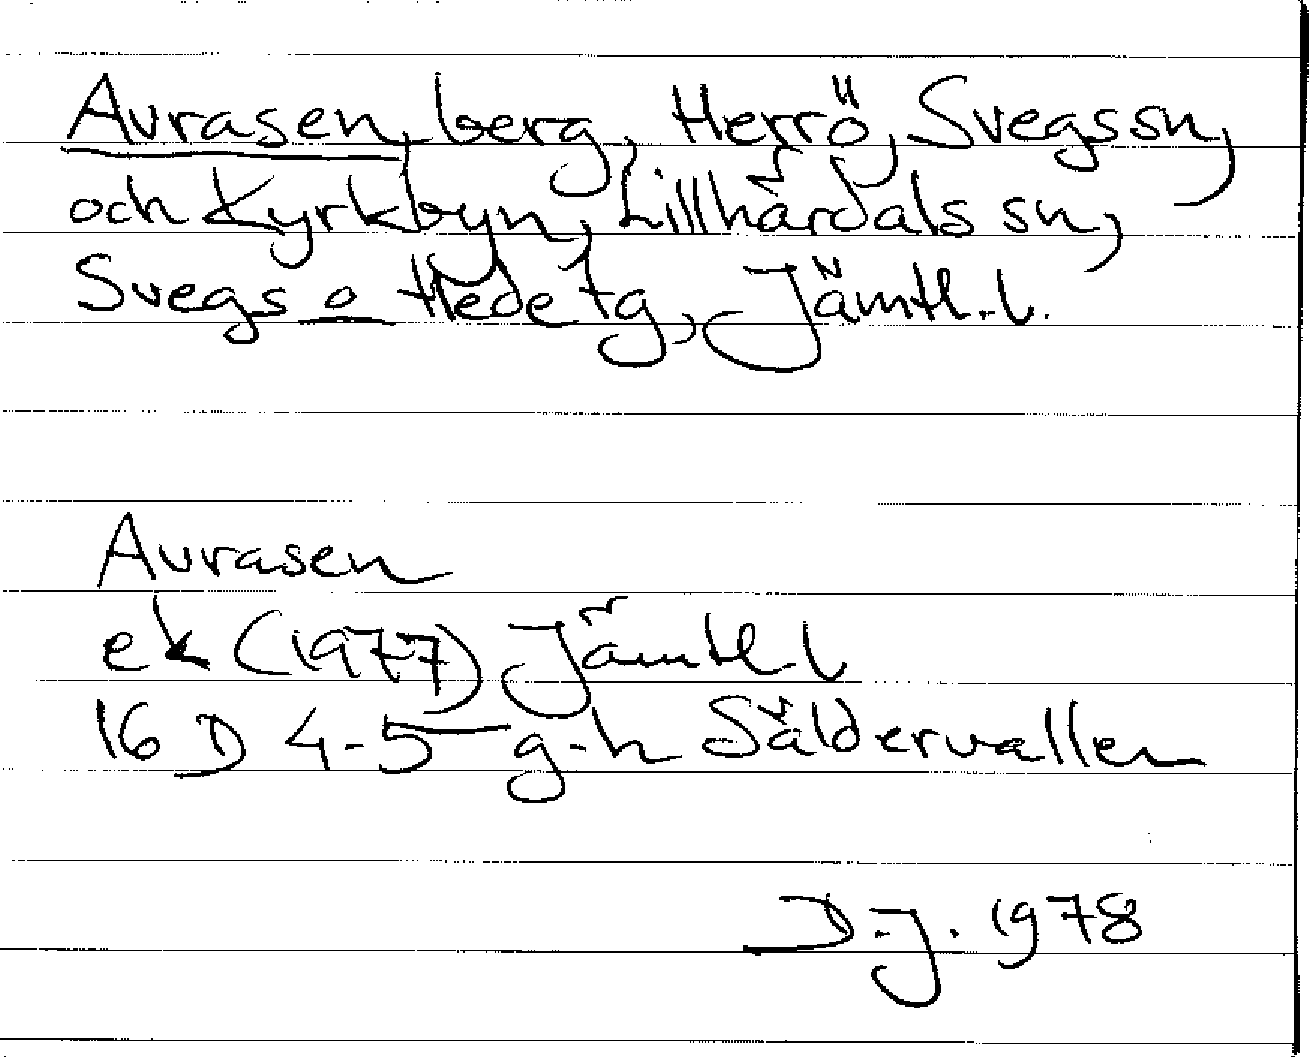 Avrasen, berg, Herrö, Svegs sn,
och Kyrkbyn, Lillhärdals sn,
Svegs o Hede tg, Jämtl. l.
Avrasen
ek (1977) Jämtl. l
16 D 4-5 g-h Säldervallen
D.J. 1978